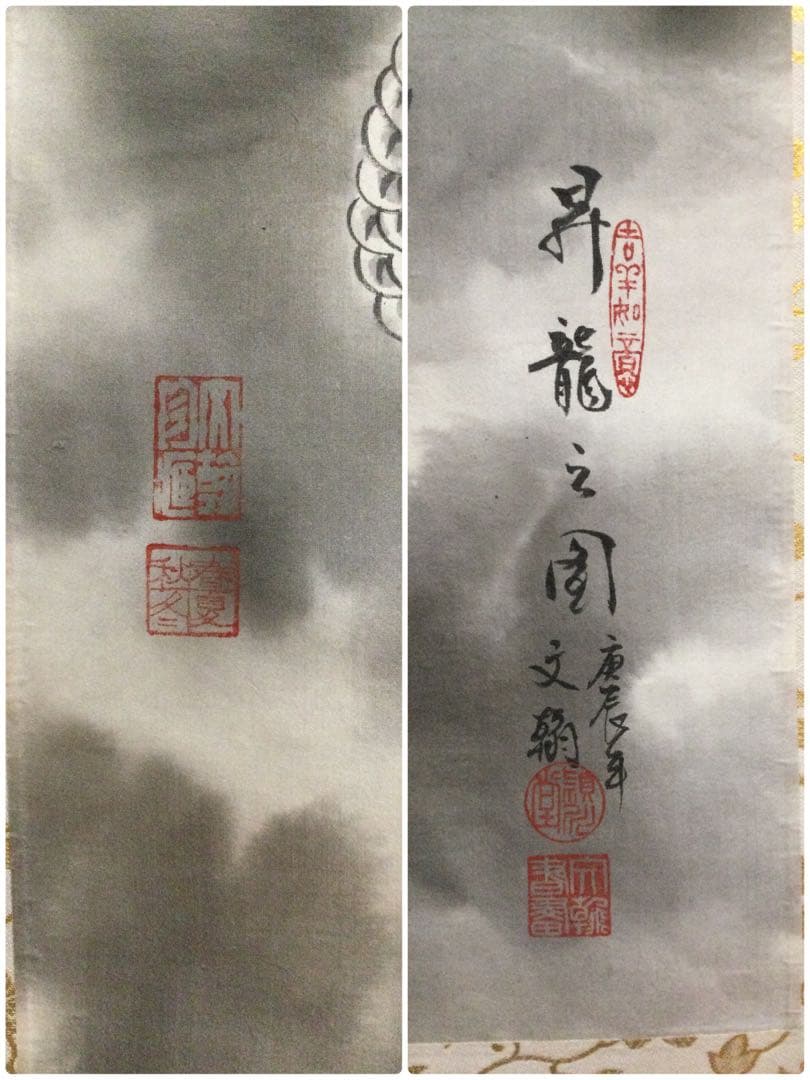 昇龍之圖
庚辰年
文翰
吉羊如意
文翰書畫
春夏秋冬